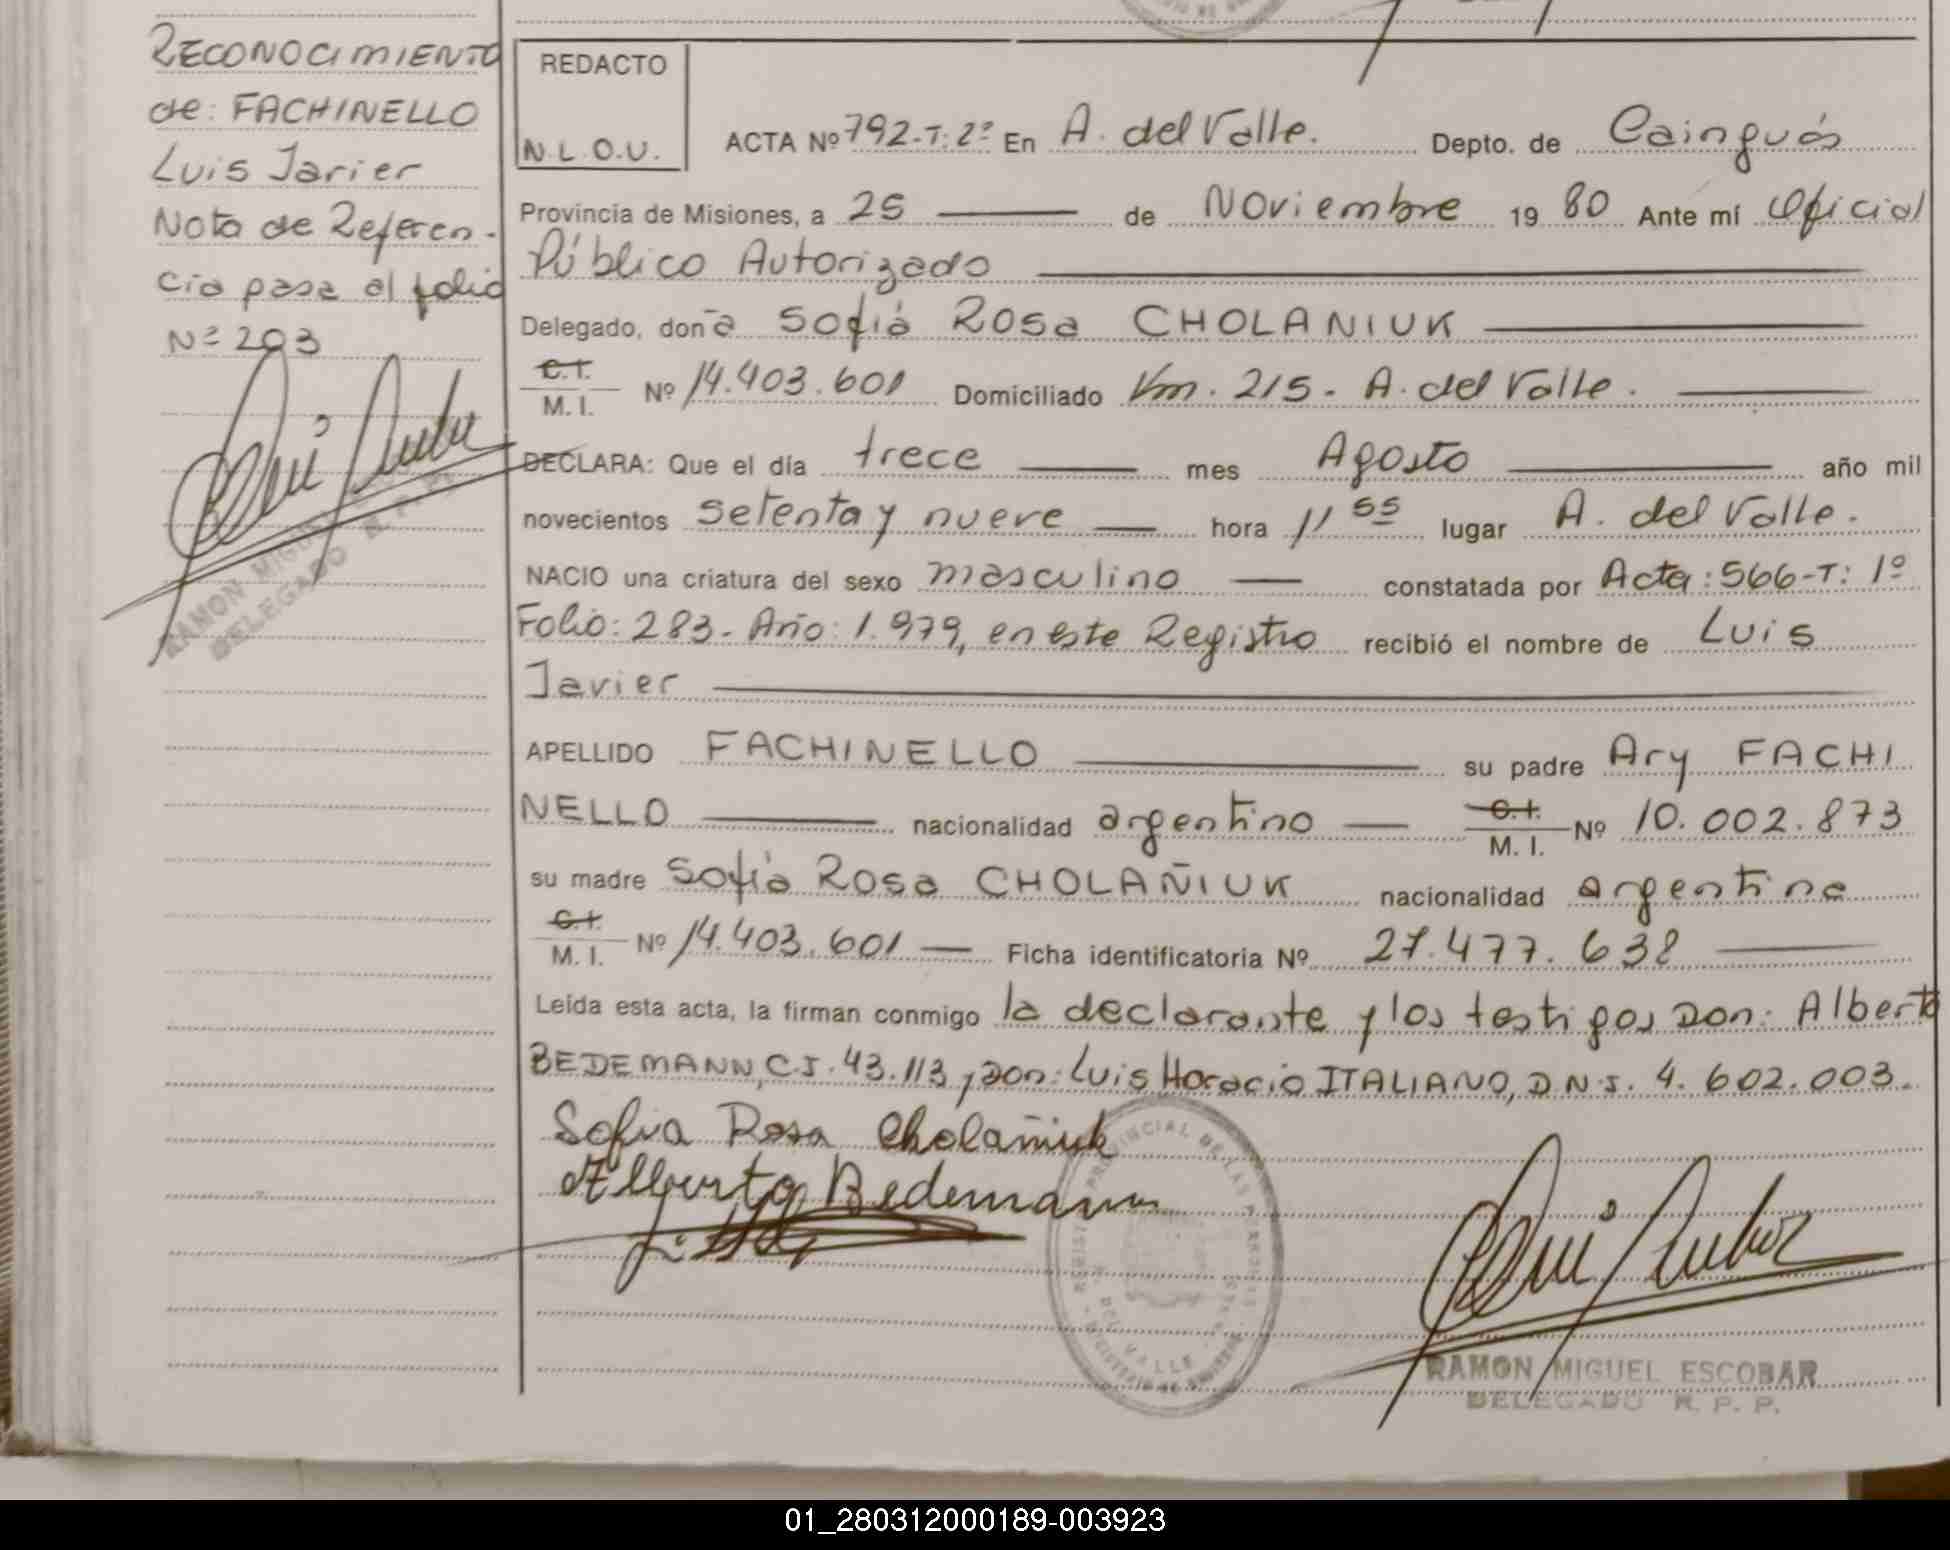 RECONOCIMIENTO
de: FACHINELLO
Luis Javier
Nota de Referen-
cia pasa al folio
Nº 293
RAMON MIGUEL
DELEGADO R. P. P.
REDACTO
N.L.O.U.
ACTA Nº 792-T: 2º En A. del Valle. Depto. de Cainguás
Provincia de Misiones, a 25 de Noviembre 19 80 Ante mí Oficial
Público Autorizado
Delegado, doña Sofía Rosa CHOLANIUK
C.I.
M. I. Nº 14.403.601 Domiciliado Km. 215 - A. del Valle.
DECLARA: Que el día trece mes Agosto año mil
novecientos setenta y nueve hora 11 55 lugar A. del Valle.
NACIO una criatura del sexo masculino constatada por Acta: 566-T: 1º
Folio: 283- Año: 1.979, en este Registro recibió el nombre de Luis
Javier
APELLIDO FACHINELLO su padre Ary FACHI
NELLO nacionalidad argentino C.I. M. I. Nº 10.002.873
su madre Sofía Rosa CHOLAÑIUK nacionalidad argentina
C.I.
M. I. Nº 14.403.601 Ficha identificatoria Nº 27.477.638
Leída esta acta, la firman conmigo la declarante y los testigos Don: Alberto
BEDEMANN, C.I. 43.113, y Don: Luis Horacio ITALIANO, D.N.I. 4.602.003.
Sofia Rosa Cholañiuk
Alberto Bedemann
RAMON MIGUEL ESCOBAR
DELEGADO R. P. P.
01_280312000189-003923